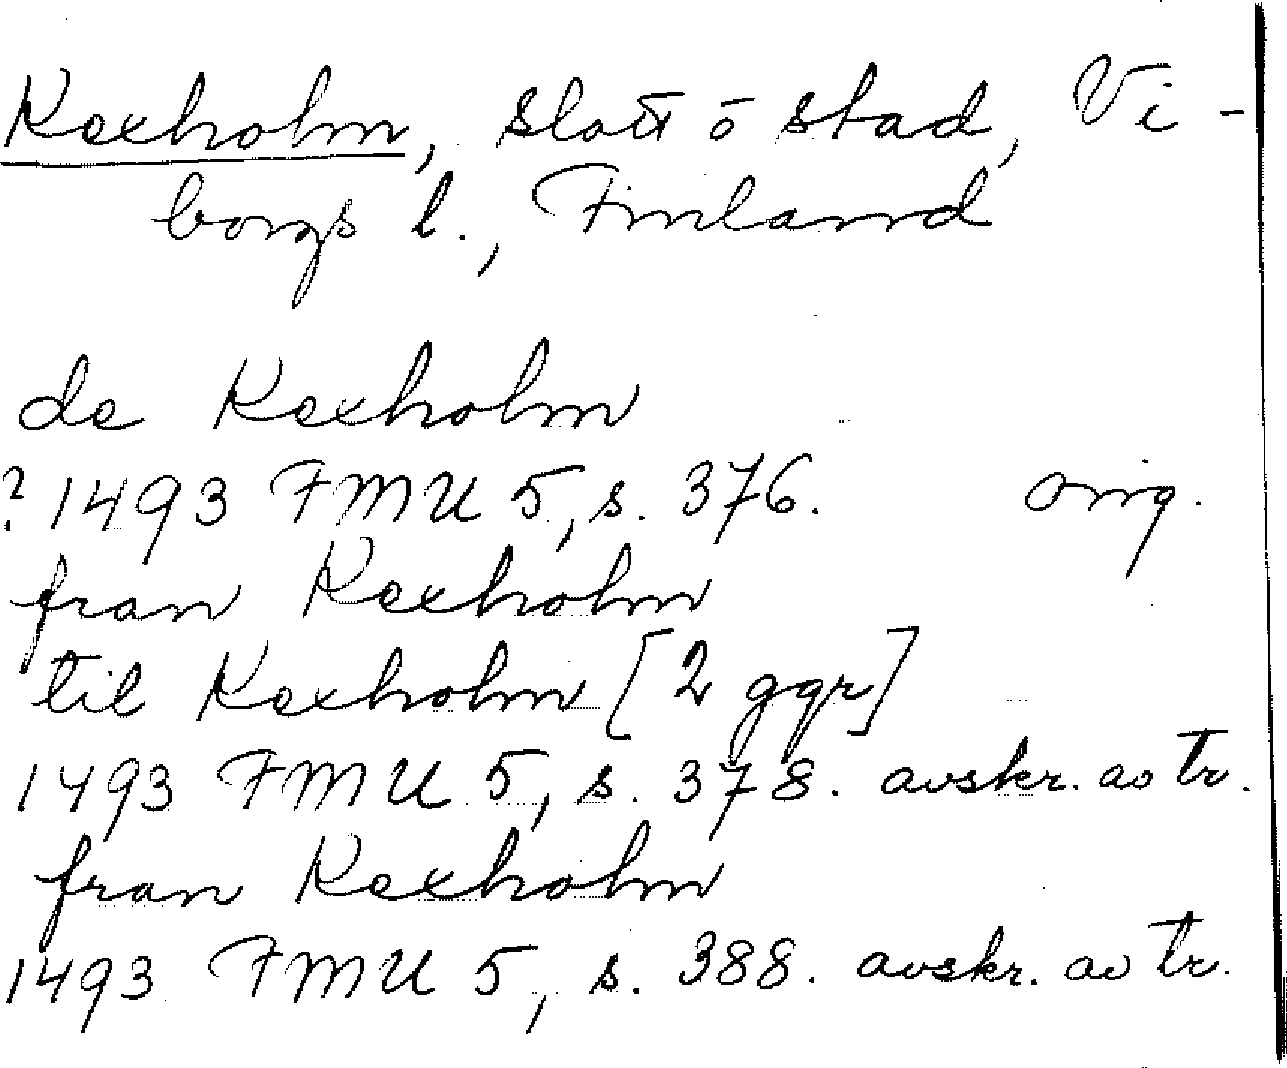 Kexholm, slott ō stad, Vi-
borgs l., Finland
de Kexholm
? 1493 FMU 5, s. 376. orig.
fran Kexholm
til Kexholm [2 ggr]
1493 FMU 5, s. 378. avskr. av tr.
fran Kexholm
1493 FMU 5, s. 388. avskr. av tr.